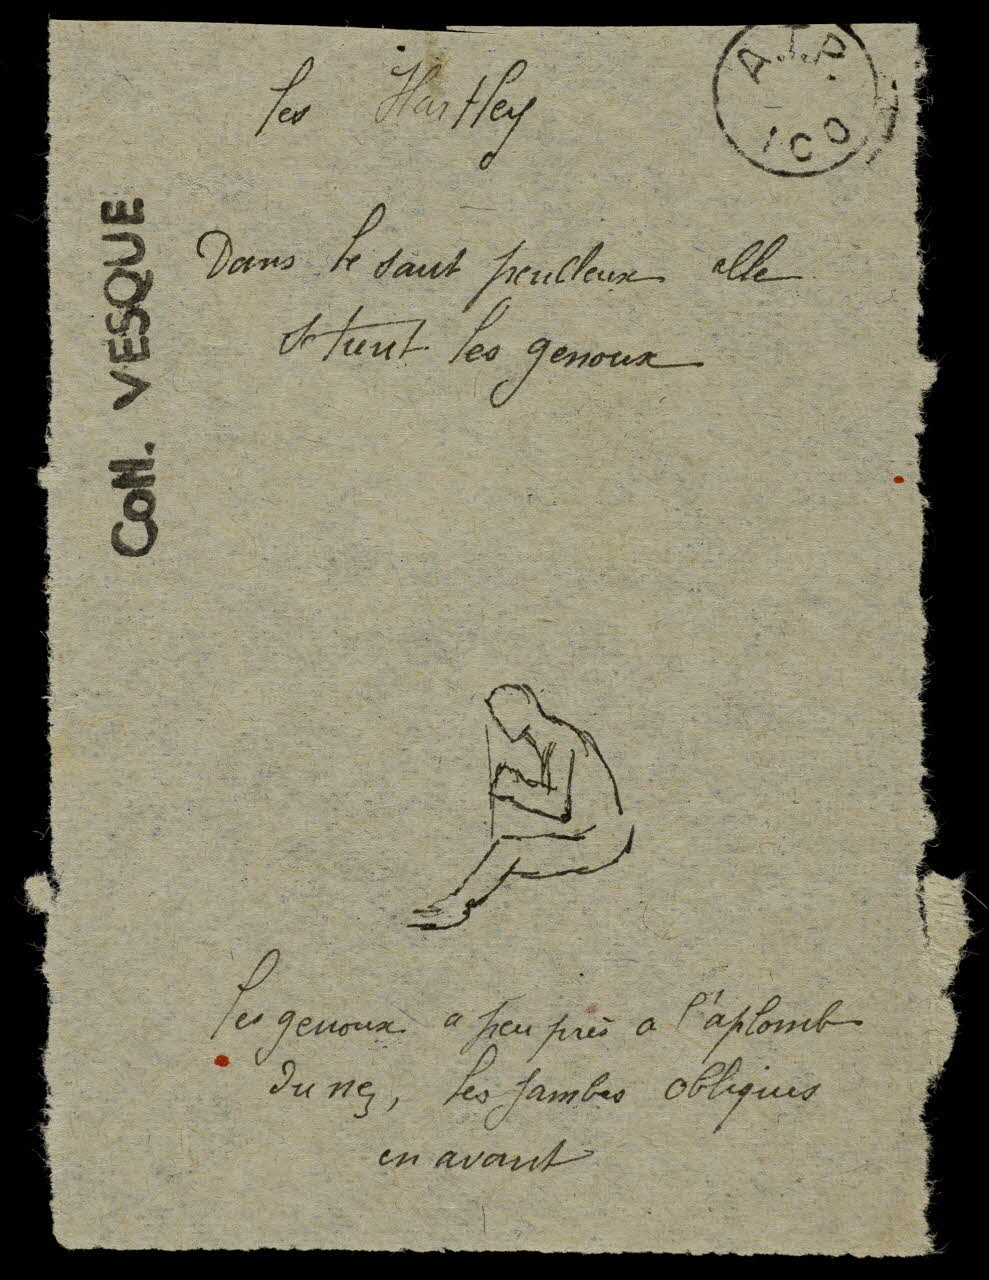 les Hartley
A.T.P.
ICO
Coll. VESQUE
Dans le saut perilleux elle
se tient les genoux
les genoux a peu près a l'aplomb
du nez, les jambes obliques
en avant